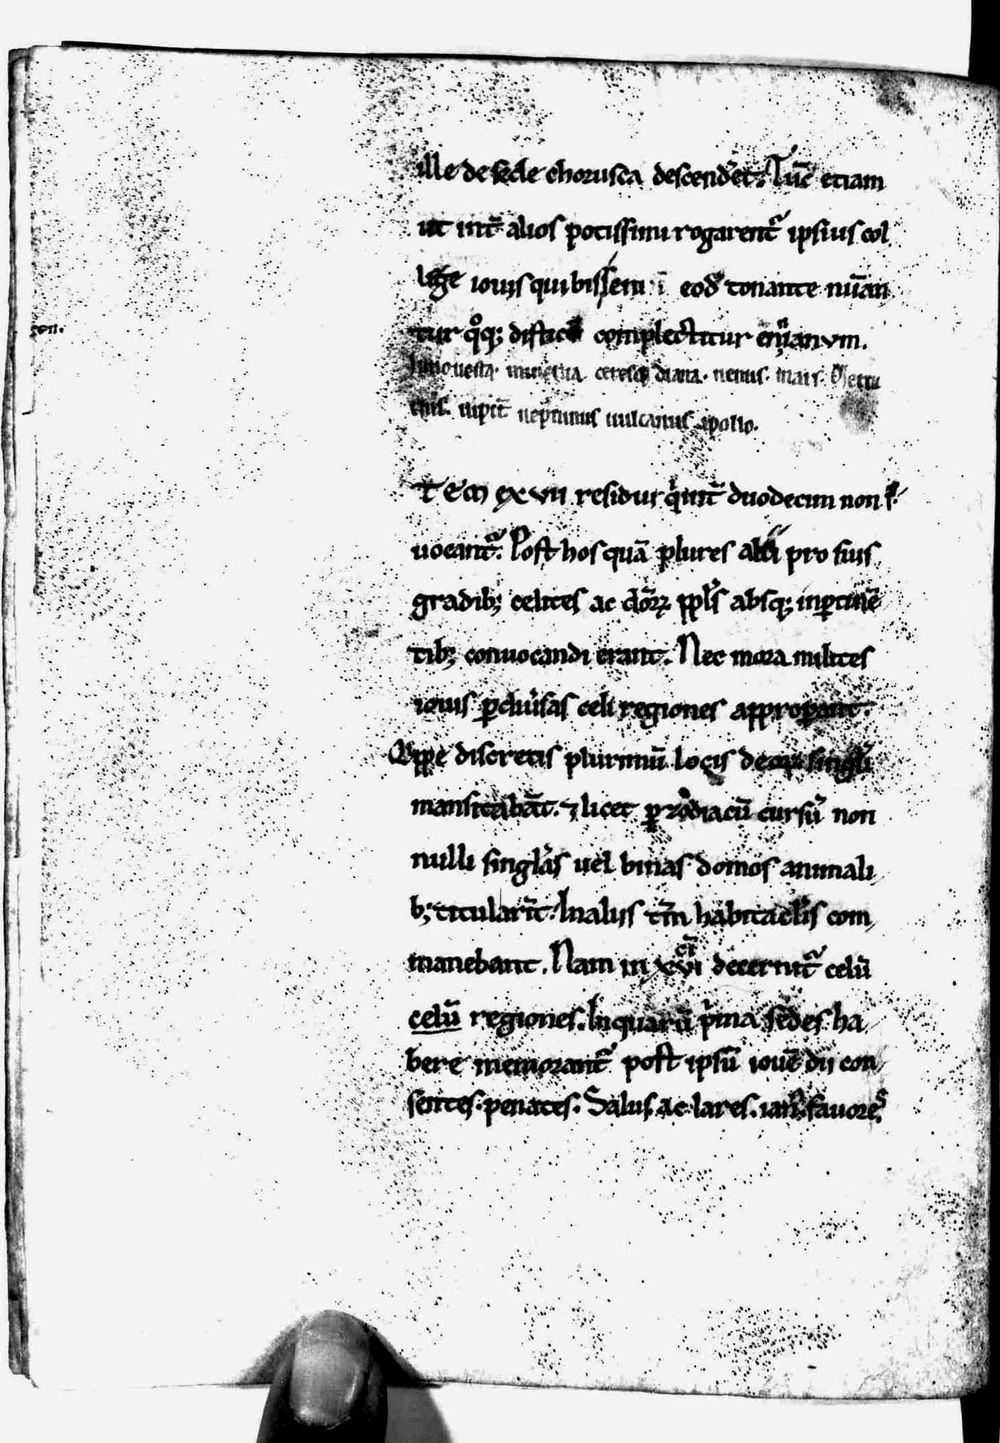 ille de sede chorusca descend̄et. Tūc etiam
ut int̄ alios potissimu rogarent᷑ ipsius col
lige iouis qui bissem ī eod̄ tonante nūan
tur q̊q; disticū complectitur enianum.
Iuno uesta. minerua ceresq diana. uenus. mars.
rius. iupit̄ neptunus uulcanus apollo.
zon.
Tem & vii residui q int̄ duodecim non
uocant᷑. Post hos quā plures alii pro suis
gradib; celites ac do᷑ꝝ ppl̄s absq; inꝑtinē
tib; conuocandi erant. Nec mora milites
iouis ꝑ diūsas celi regiones appropant.
Qippe discretis plurimū locis deorū singl̄i
mansitabāt. ⁊ licet ꝑ zodiacū cursū non
nulli singl̄as uel binas domos animali
b; titularīt. In aliis tm̄ habitacl̄is com
manebant. Nam in xvi decernit᷑ celū
celū regiones. In quarū p̄ma sedes ha
bere memorant᷑ post ipsū iouē dii con
sentes. penates. Salus ac lares. ian᷒. fauores